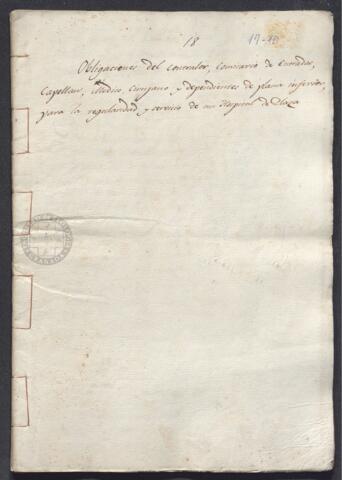 18
19-20
Obligaciones del Contralor, Comisario de Entradas,
Capellan, Medico, Cirujano y dependientes de plana inferior,
para la regularidad y servicio de un Hospital de Plaza